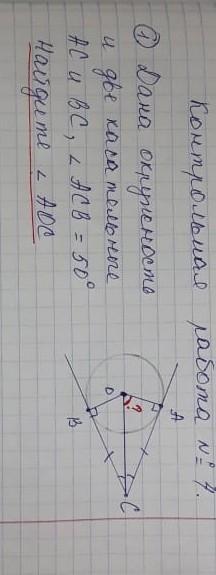 Контрольная работа № 7.
① Дана окружность
и две касательные
AC и BC, ∠ ACB = 50°
Найдите ∠ AOC
A
?
O
C
B